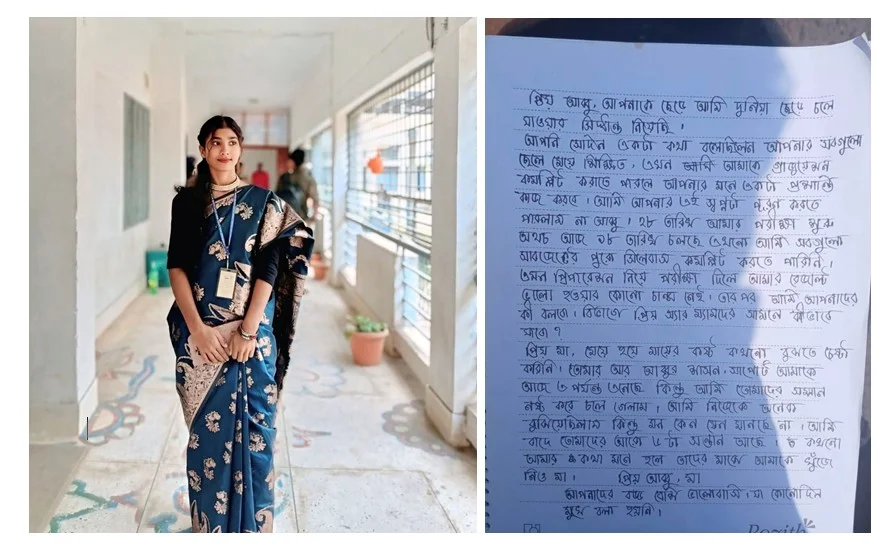 প্রিয় আব্বু, আপনাকে ছেড়ে আমি দুনিয়া ছেড়ে চলে
যাওয়ার সিদ্ধান্ত নিয়েছি।
আপনি সেদিন একটা কথা বলেছিলেন আপনার সবগুলো
ছেলে মেয়ে শিক্ষিত, এখন আমাকে গ্রাজুয়েশন
কমপ্লিট করাতে পারলে আপনার মনে একটা প্রশান্তি
কাজ করবে। আমি আপনার এই স্বপ্নটা পূরণ করতে
পারলাম না আব্বু। ২৮ তারিখ আমার পরীক্ষা শুরু
অথচ আজ ১৮ তারিখ চলছে এখনো আমি সবগুলো
সাবজেক্টের পুরো সিলেবাস কমপ্লিট করতে পারিনি।
এমন প্রিপারেশন নিয়ে পরীক্ষা দিলে আমার রেজাল্ট
ভালো হওয়ার কোনো চান্স নেই। তারপর আমি আপনাদের
কী বলবো, বিভাগে প্রিয় স্যার ম্যামদের সামনে কীভাবে
যাবো?
প্রিয় মা, মেয়ে হয়ে মায়ের কষ্ট কখনো বুঝতে চেষ্টা
করিনি। তোমার আর আব্বুর শাসন, সাপোর্ট আমাকে
আজ এ পর্যন্ত এনেছে কিন্তু আমি তোমাদের সম্মান
নষ্ট করে চলে গেলাম। আমি নিজেকে অনেক
বুঝিয়েছিলাম কিন্তু মন কেন যেন মানছে না। আমি
বাদে তোমাদের আরো ৫ টা সন্তান আছে। কখনো
আমার কথা মনে হলে তাদের মাঝে আমাকে খুঁজে
নিও মা। প্রিয় আব্বু, মা
আপনাদের বড্ড বেশি ভালোবাসি, যা কোনোদিন
মুখে বলা হয়নি।